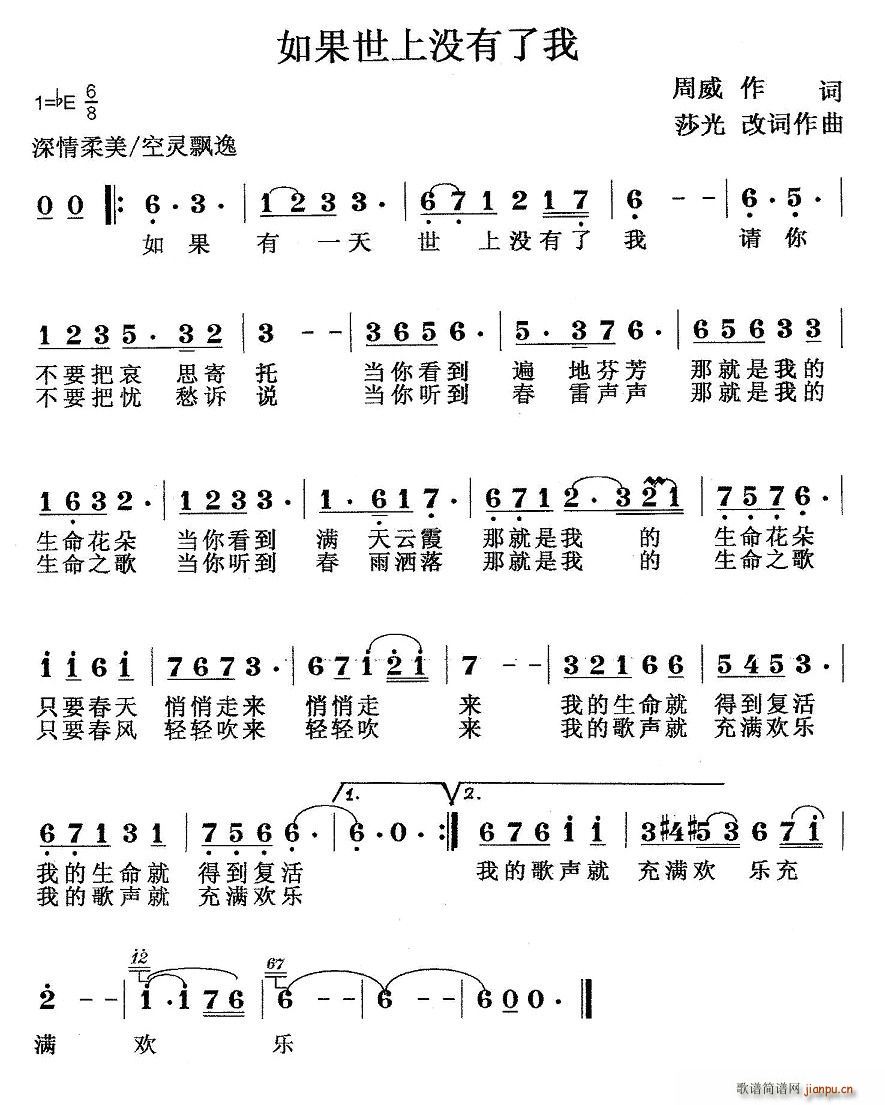 如果世上没有了我
1=♭E 6/8
周威 作 词
莎光 改词作曲
深情柔美/空灵飘逸
0 0 ‖: 6· 3· | 1 2 3 3· | 6 7 1 2 1 7 | 6 - - | 6· 5· |
如 果 有 一 天 世 上 没 有 了 我 请 你
1 2 3 5· 3 2 | 3 - - | 3 6 5 6· | 5· 3 7 6· | 6 5 6 3 3 |
不要把哀 思寄 托 当你看到 遍 地芬芳 那就是我的
不要把忧 愁诉 说 当你听到 春 雷声声 那就是我的
1 6 3 2· | 1 2 3 3· | 1· 6 1 7· | 6 7 1 2· 3 2 1 | 7 5 7 6· |
生命花朵 当你看到 满 天云霞 那就是我 的 生命花朵
生命之歌 当你听到 春 雨洒落 那就是我 的 生命之歌
1 1 6 1 | 7 6 7 3· | 6 7 1 2 1 | 7 - - | 3 2 1 6 6 | 5 4 5 3· |
只要春天 悄悄走来 悄悄走 来 我的生命就 得到复活
只要春风 轻轻吹来 轻轻吹 来 我的歌声就 充满欢乐
1. 2.
6 7 1 3 1 | 7 5 6 6 6· | 6· 0· :‖ 6 7 6 1 1 | 3 #4 #5 3 6 7 1 |
我的生命就 得到复活 我的歌声就 充满欢 乐充
我的歌声就 充满欢乐
12 67
2 - - | 1· 1 7 6 | 6 - - | 6 - - | 6 0 0 0· ‖
满 欢 乐
歌谱简谱网 jianpu.cn